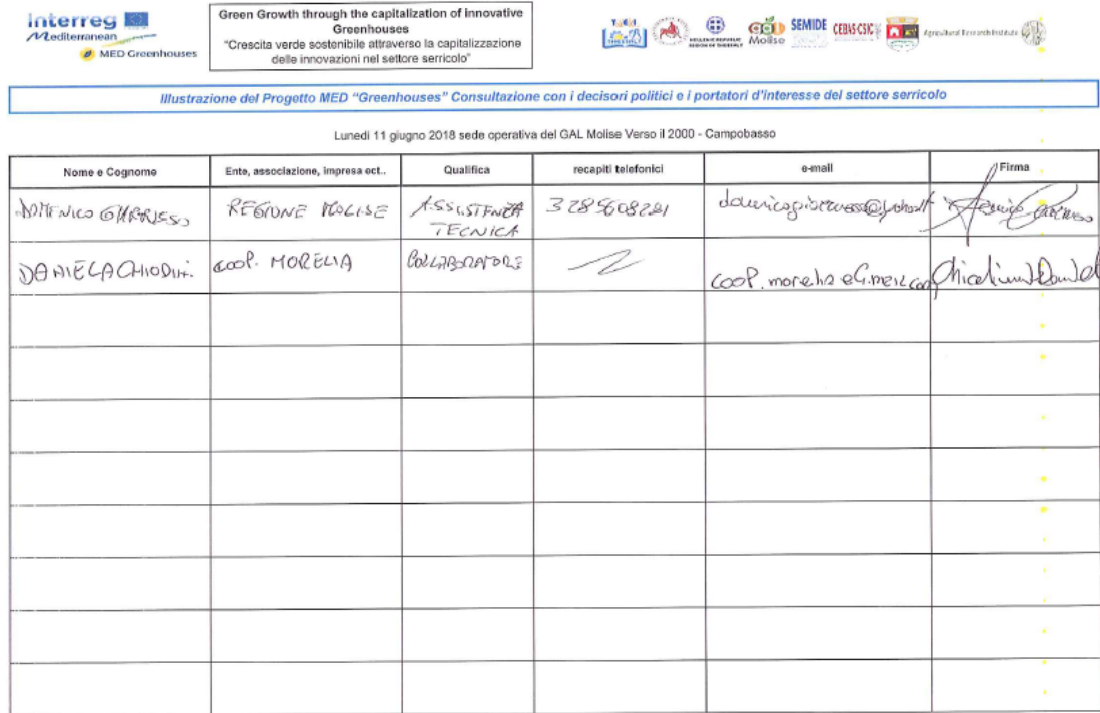 Interreg
Mediterranean
MED Greenhouses
Green Growth through the capitalization of innovative
Greenhouses
"Crescita verde sostenibile attraverso la capitalizzazione
delle innovazioni nel settore serricolo"
HELLENIC REPUBLIC
REGION OF THESSALY
gal
Molise
SEMIDE
CEBAS-CSIC
Agricultural Research Institute
Illustrazione del Progetto MED "Greenhouses" Consultazione con i decisori politici e i portatori d'interesse del settore serricolo
Lunedì 11 giugno 2018 sede operativa del GAL Molise Verso il 2000 - Campobasso
Nome e Cognome Ente, associazione, impresa ect.. Qualifica recapiti telefonici e-mail Firma
DOMENICO REGIONE MOLISE ASSISTENZA
TECNICA
DANIELA COOP. MORELIA COLLABORATORE